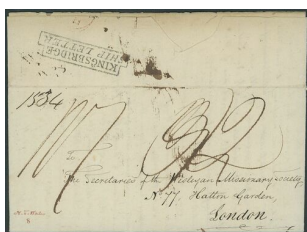 KINGSBRIDGE
SHIP LETTER
1834
To
The Secretaries of the Wesleyan Missionary Society
No. 77 Hatton Garden,
London.